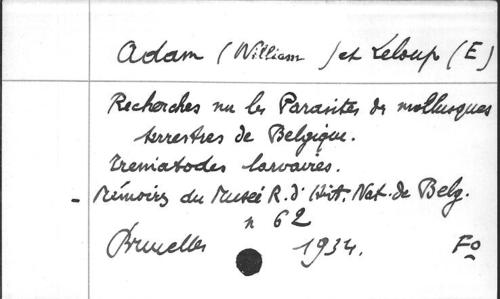 Adam (William) et Leloup (E)
Recherches sur les Parasites des mollusques
terrestres de Belgique.
Trematodes larvaires.
- Mémoires du Musée R. d'Hist. Nat. de Belg.
n 62
Bruxelles 1934. Fo